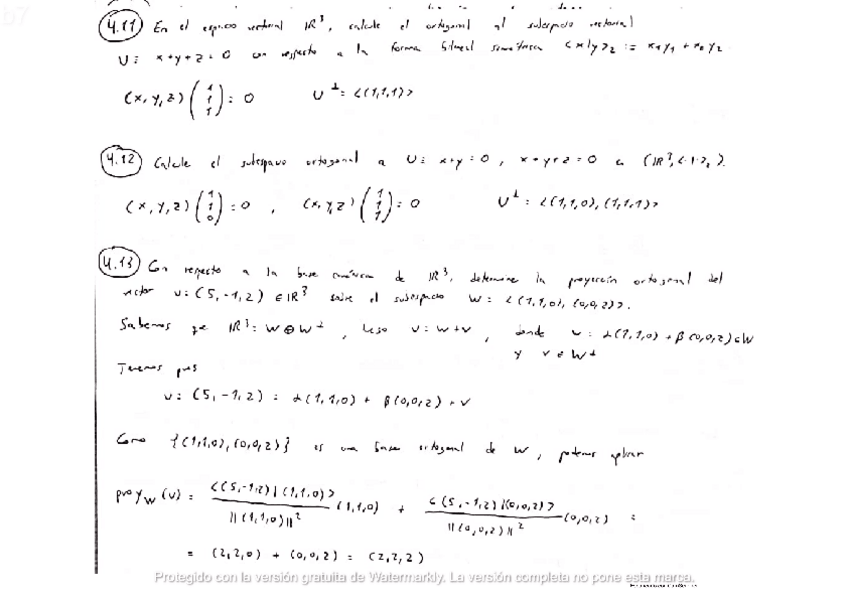 67
4.11 En el espacio vectorial IR³, calcule el ortogonal al subespacio vectorial
U: x+y+z=0 con respecto a la forma bilineal simétrica <x|y>₂ := x₁y₁ + x₂y₂
(x,y,z)(1 1 1) = 0 U^⊥ = <(1,1,1)>
4.12 Calcule el subespacio ortogonal a U: x+y=0, x+y+z=0 en (IR³,<·|·>₂).
(x,y,z)(1 1 0) = 0, (x,y,z)(1 1 1) = 0 U^⊥ = <(1,1,0),(1,1,1)>
4.13 Con respecto a la base canónica de IR³, determine la proyección ortogonal del
vector u=(5,-1,2) ∈ IR³ sobre el subespacio W = <(1,1,0),(0,0,2)>.
Sabemos que IR³ = W ⊕ W^⊥, luego u = w+v, donde w = α(1,1,0) + β(0,0,2) ∈ W
y v ∈ W^⊥
Tenemos pues
u = (5,-1,2) = α(1,1,0) + β(0,0,2) + v
Como {(1,1,0),(0,0,2)} es una base ortogonal de W, podemos aplicar
proy_W(u) = <(5,-1,2)|(1,1,0)> / ||(1,1,0)||² (1,1,0) + <(5,-1,2)|(0,0,2)> / ||(0,0,2)||² (0,0,2) =
= (2,2,0) + (0,0,2) = (2,2,2)
Protegido con la versión gratuita de Watermarkly. La versión completa no pone esta marca.